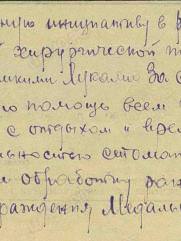 ную инициативу в р
хирургической п
ликими Луками За с
ю помощь всем
с отдыхом и вре
льностью стомат
обработку ран
раждения Медаль